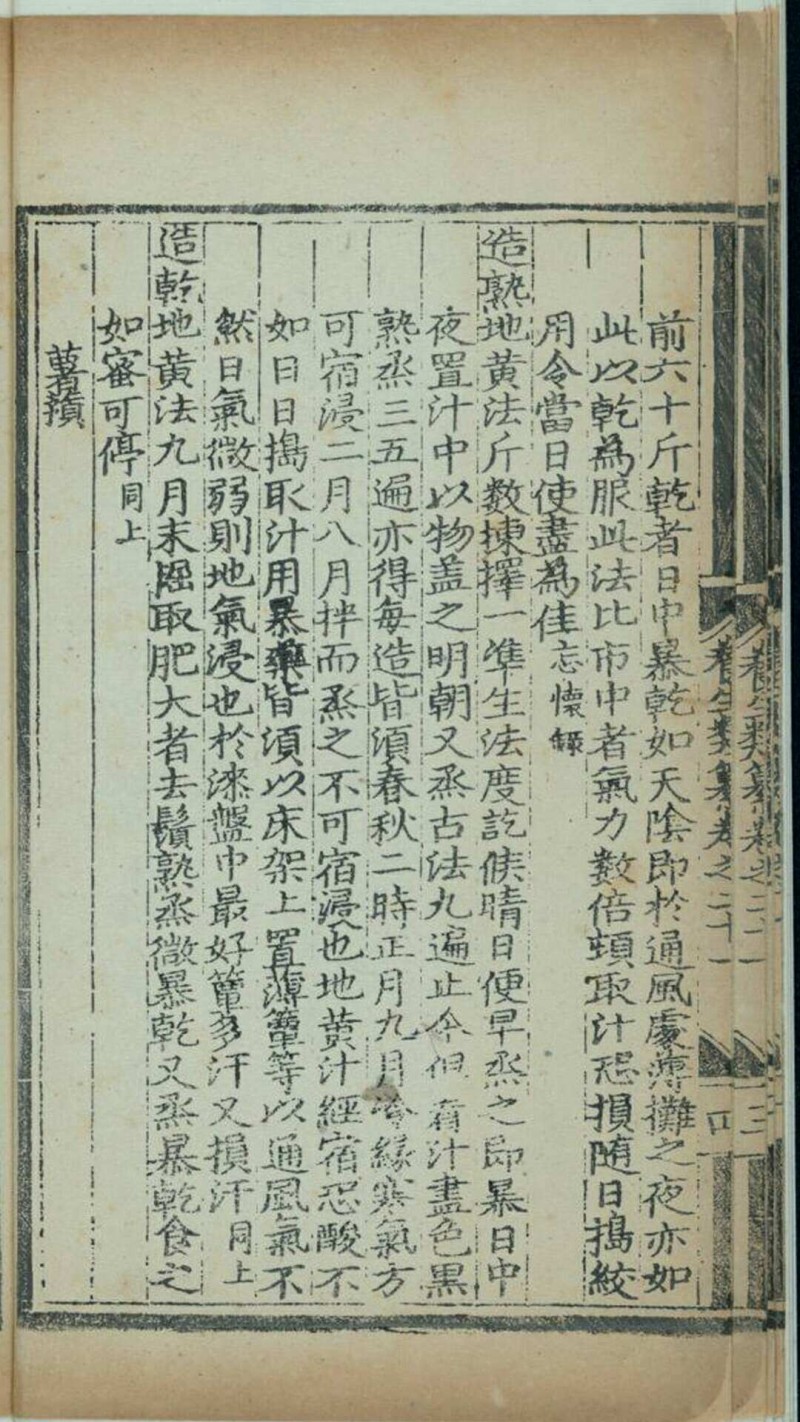 養生類纂卷之二十一
四
前六十斤乾者日中暴乾如天陰即於通風處薄攤之夜亦如
此以乾為服此法比市中者氣力數倍頓取汁恐損随日搗絞
用令當日使盡為佳忘懷錄
造熟地黃法斤数揀擇一準生法度訖候晴日便早蒸之即暴日中
夜置汁中以物盖之明朝又蒸古法九遍止今但看汁盡色黑
熟蒸三五遍亦得每造皆須春秋二時正月九月冷緣寒氣方
可宿浸二月八月拌而蒸之不可宿浸也地黃汁經宿恐酸不
如日日搗取汁用暴藥皆須以床架上置薄簟等以通風氣不
然日氣微弱則地氣浸也於漆盤中最好簟多汗又損汗同上
造乾地黃法九月末掘取肥大者去鬚熟蒸微暴乾又蒸暴乾食之
如蜜可停同上
薯蕷